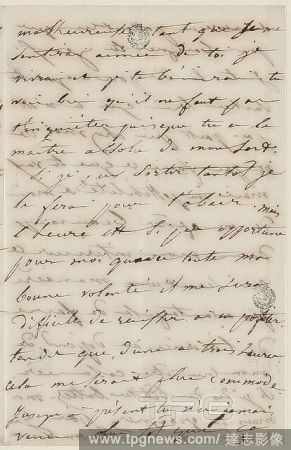 malheureuse tant que je me
sentirai aimée de toi je
vivrai et je te bénirai tu
vois bien qu'il ne faut pas
t'inquiéter puisque tu es le
maître absolu de mon sort.
Si je puis sortir tantôt je
le ferai pour t'obéir mais
l'heure est si peu opportune
pour moi que toute ma
bonne volonté il me sera
difficile de
tandis que d'une à trois heures
cela me serait plus commode
Jusqu'à présent tu n'es jamais
venu plus tôt que
TPG
www.tpgnews.com | 達志影像